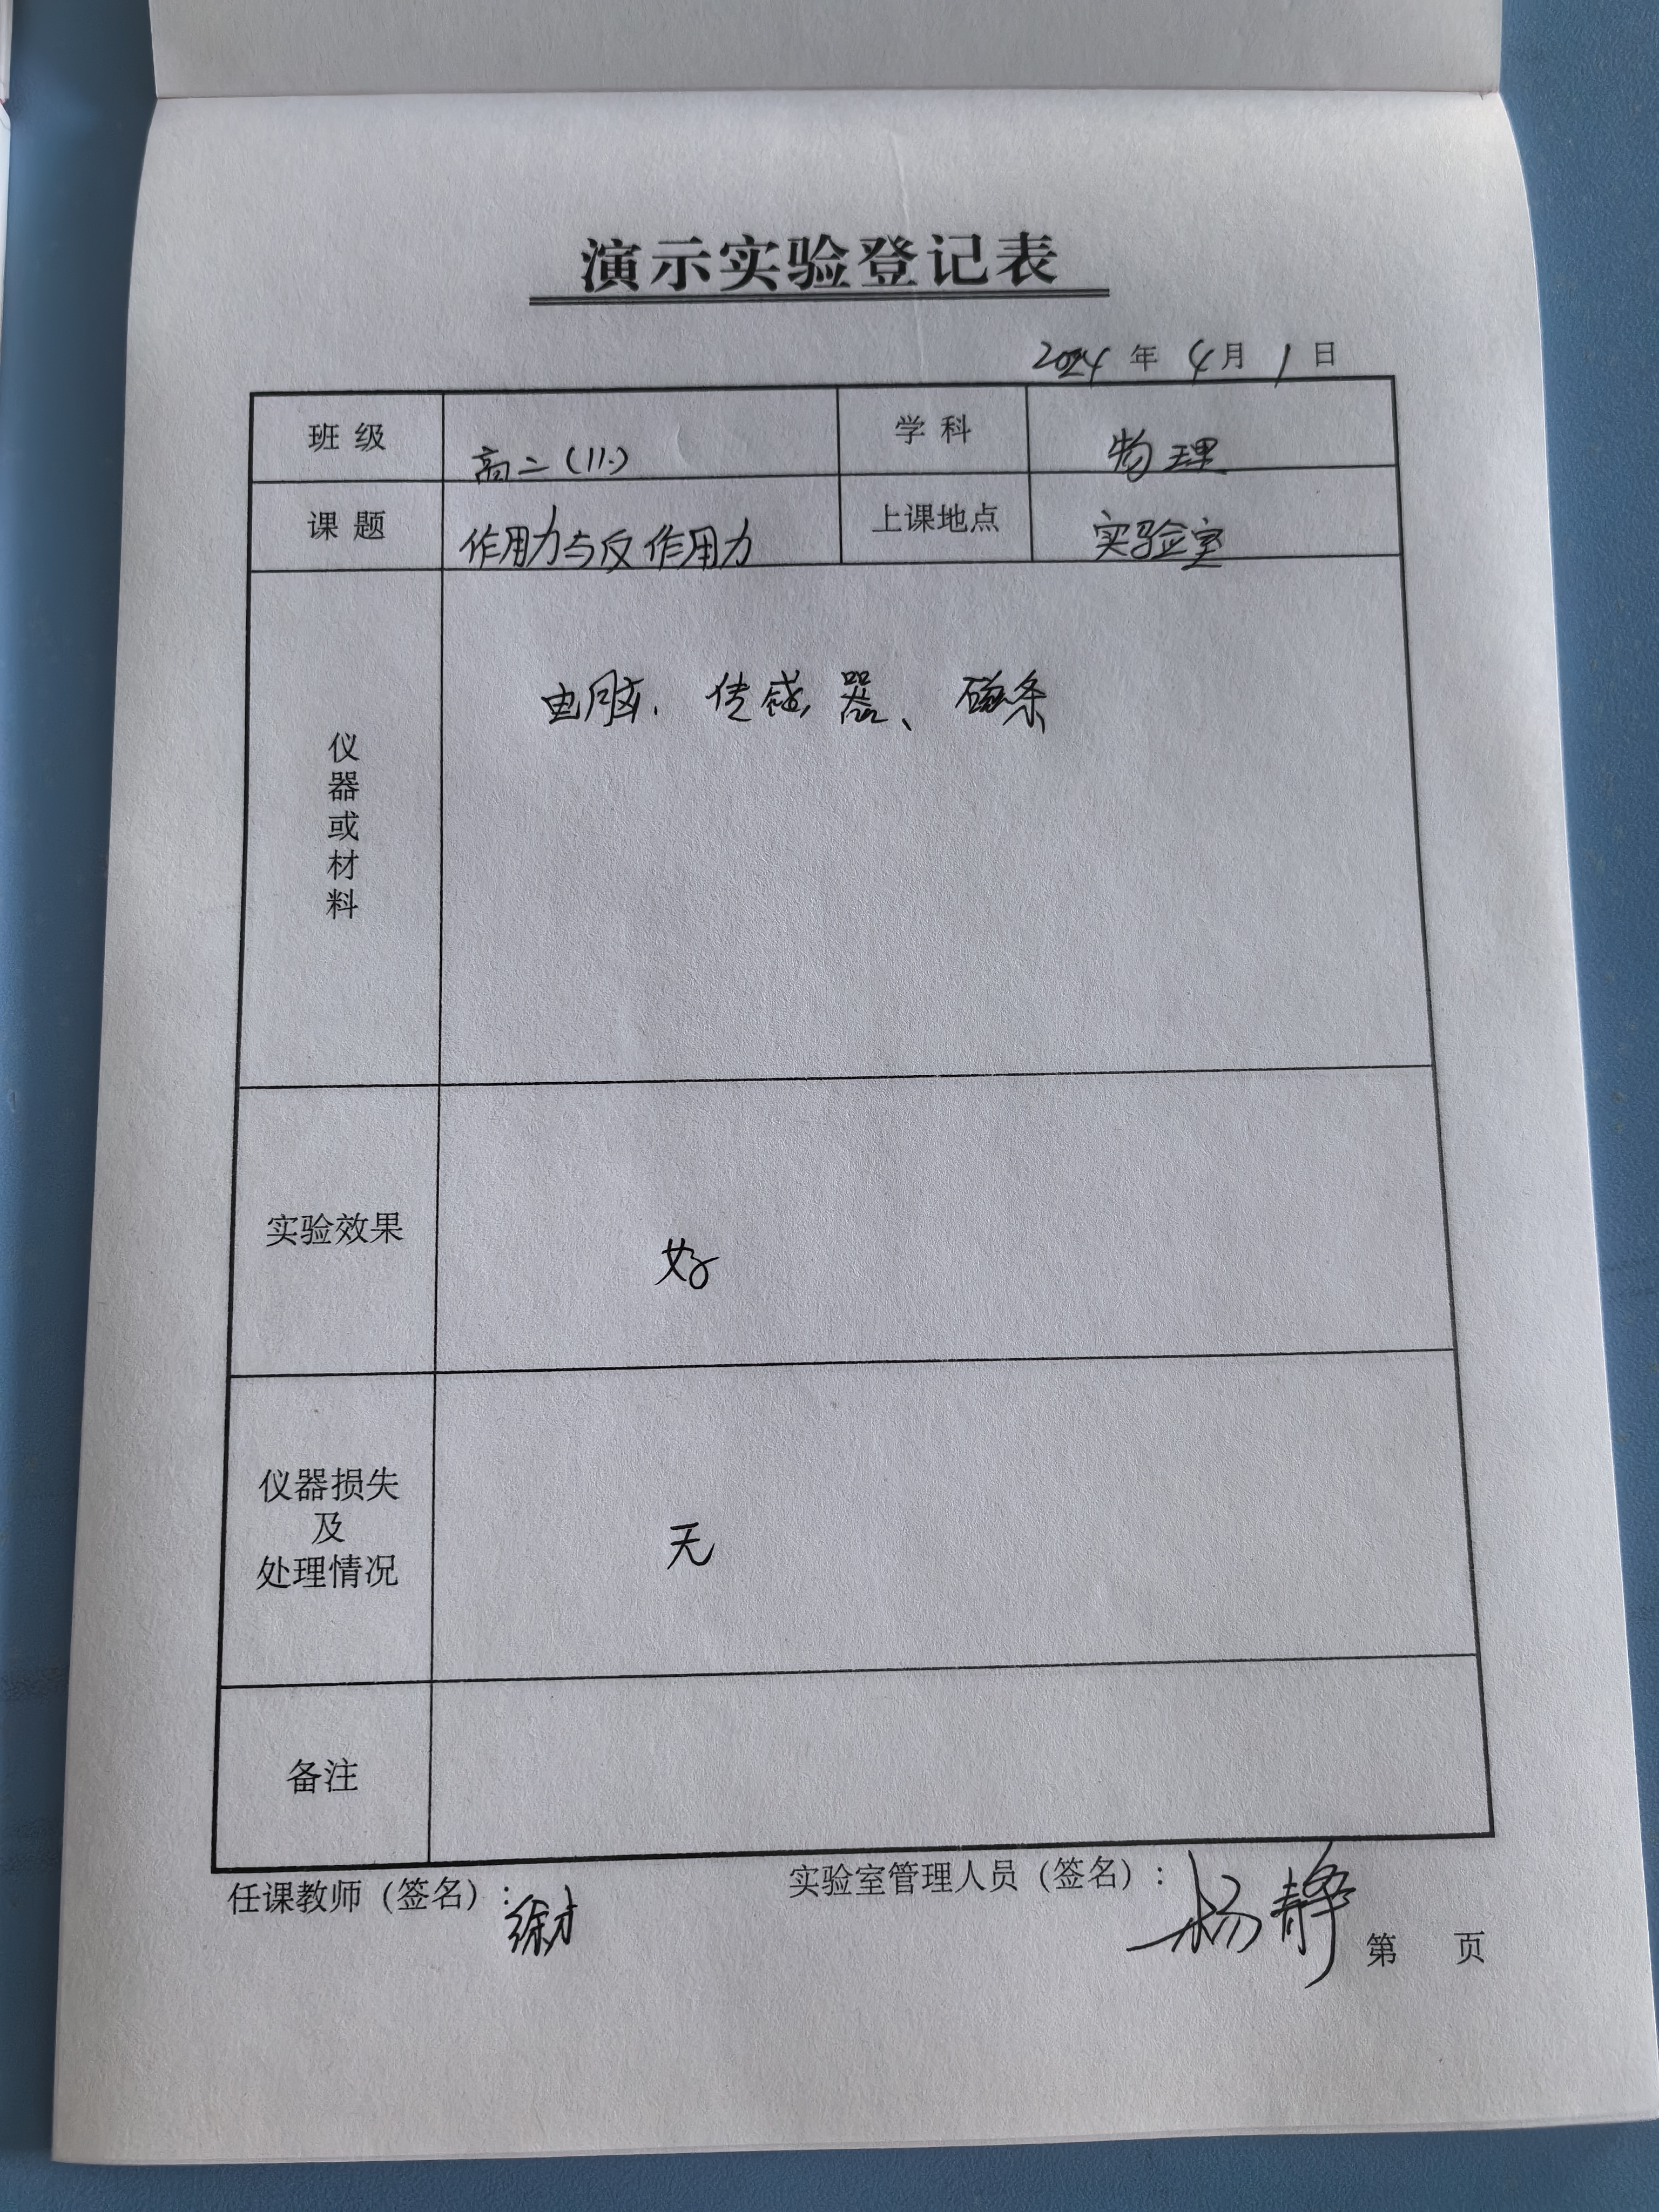 演示实验登记表
2024 年 4 月 1 日
班 级 高二(11.) 学 科 物理
课 题 作用力与反作用力 上课地点 实验室
仪器或材料 电脑、传感器、磁条
实验效果 好
仪器损失
及
处理情况 无
备注
任课教师（签名）： 实验室管理人员（签名）：杨静
第 页